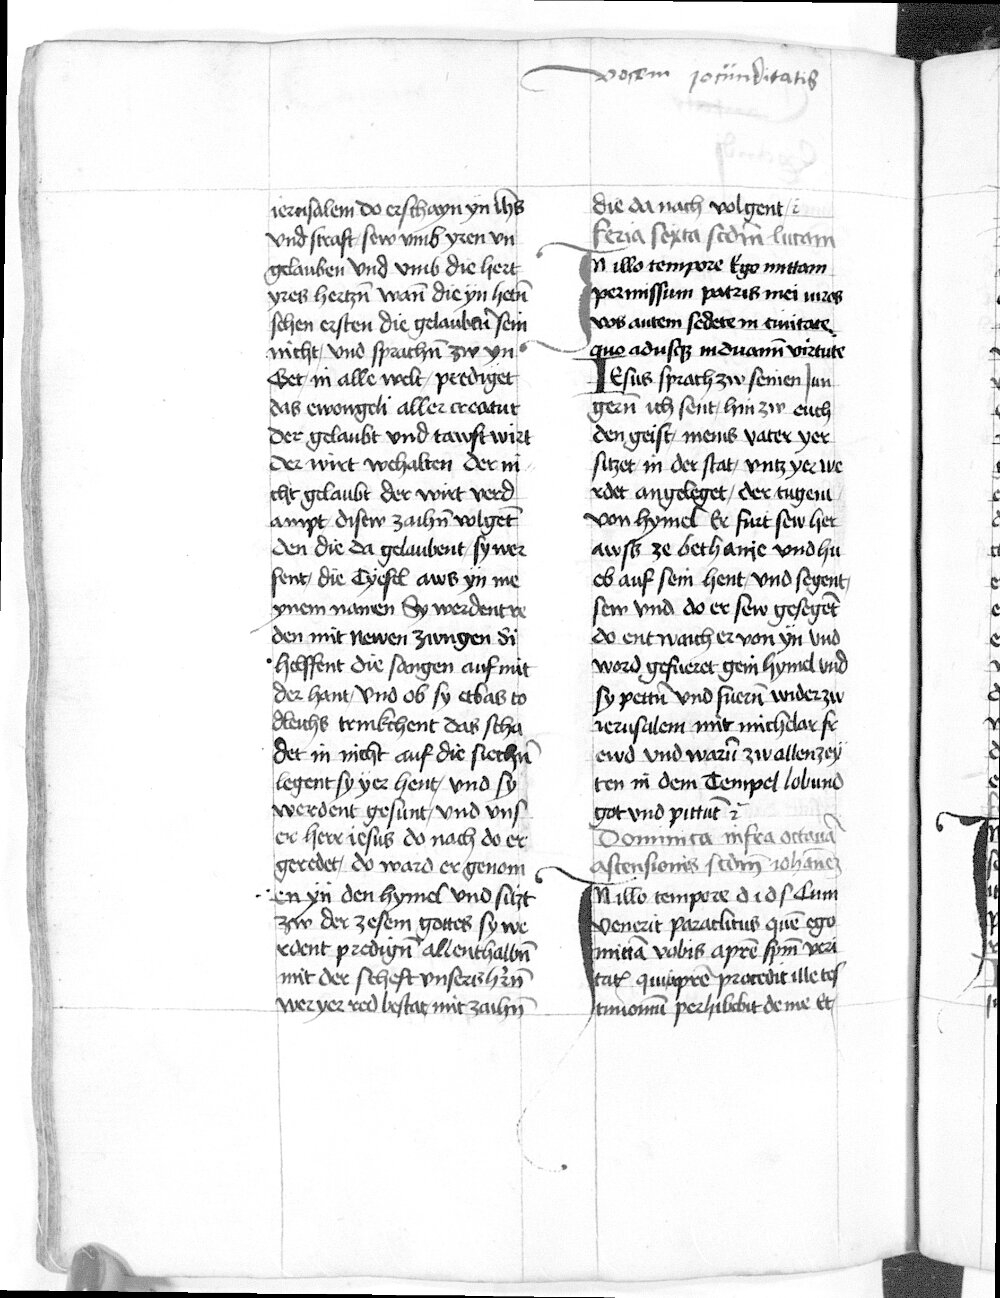 vocem iocunditatis
ierusalem do erschayn yn ihs
vnd straft sew vmb yren vn
gelauben vnd vmb die hert
yres hertzn̄ wan̄ die yn heten̄
sehen ersten die gelaubtn̄ sein
nicht / vnd sprachn̄ zw yn
Get in alle welt / prediget
das ewongeli aller creatur
der gelaubt vnd tawft wirt
der wirt wehalten der ni
cht gelaubt der wirt verd
ampt disew zaihn̄ volget̄
den die da gelaubent / sy wer
fent / die tyefel aws yn me
ynem namen Sy werdent re
den mit newen zungen di
helffent die slangen auf mit
der hant / vnd ob sy etbas to
dleichs trinkchent das scha
det in nicht auf die siechn̄
legent sy yer hent / vnd sy
werdent gesunt / vnd vns
er herr iesus do nach do er
geredet / do ward er genom
en yn den hymel vnd siczt
zw der zesem gottes sy we
rdent predign̄ allenthalbn̄
mit der scheft vnsers h'rn̄
wer yer red bestat mit zaihn̄
die da nach volgent / ꝛ
feria sexta scdm̄ lucam
IN illo tempore Ego mittam
permissum patris mei in vos
vos autem sedete in ciuitate
quo adusqȝ induam̄ virtute
IEsus sprach zw seinen Jun
gern̄ ich sent / hin zw euch
den geist / meins vater yer
sitzet in der stat / vntz yer we
rdet angeleget / der tugent
von hymel Er furt sew her
awsß ze bethanie vnd hu
eb auf sein hent / vnd segent /
sew vnd do er sew gesegēt
do entwaich er von yn vnd
word gefueret gein hymel vnd
sy pettn̄ vnd fuern̄ wider zw
ierusalem mit micheler fr
ewd vnd warn̄ zw allen zey
ten in dem Tempel lobund
got vnd pittūt ꝛ
Dominica infra octauā
ascensionis scdm̄ iohaneȝ
IN illo tempore d i d s Cum
venerit paraclitus quē ego
mittā vobis a pr̄e spm̄ veri
tat' qui a pr̄e procedit ille tes
timoniū perhibebit de me Et